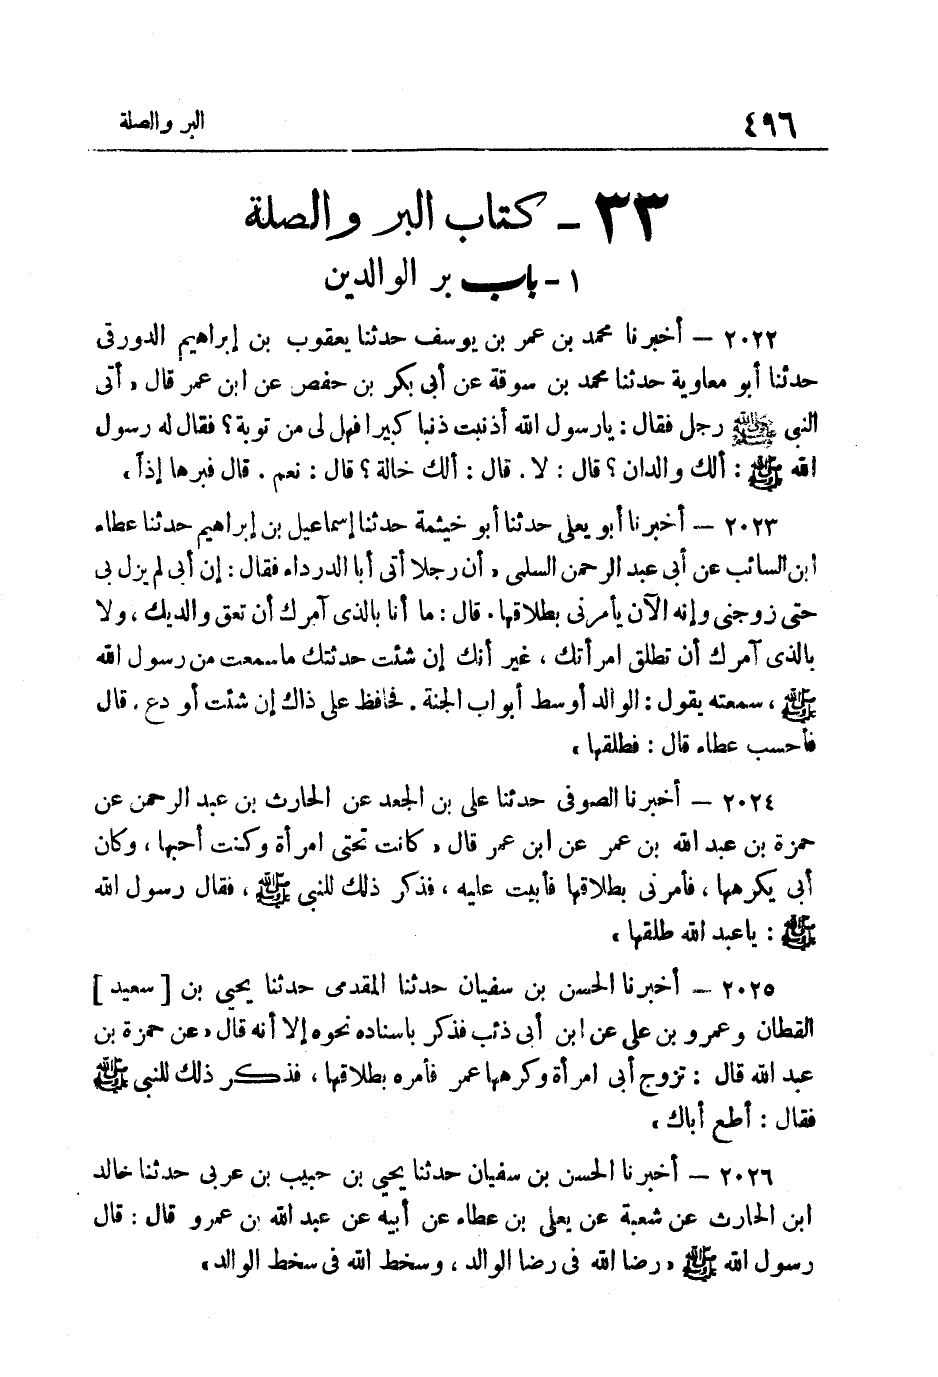 ٤٩٦ البر والصلة
٣٣ - كتاب البر والصلة
١ - باب بر الوالدين
٢٠٢٢ – أخبرنا محمد بن عمر بن يوسف حدثنا يعقوب بن إبراهيم الدورقى
حدثنا أبو معاوية حدثنا محمد بن سوقة عن أبى بكر بن حفص عن ابن عمر قال « أتى
النبى ﷺ رجل فقال : يارسول الله أذنبت ذنبا كبيرا فهل لى من توبة ؟ فقال له رسول
الله ﷺ : ألك والدان ؟ قال : لا . قال : ألك خالة ؟ قال : نعم . قال فبرها إذاً »
٢٠٢٣ – أخبرنا أبو يعلى حدثنا أبو خيثمة حدثنا إسماعيل بن إبراهيم حدثنا عطاء
ابن السائب عن أبى عبد الرحمن السلمى « أن رجلا أتى أبا الدرداء فقال : إن أبى لم يزل بى
حتى زوجنى وإنه الآن يأمرنى بطلاقها . قال : ما أنا بالذى آمرك أن تعق والديك ، ولا
بالذى آمرك أن تطلق امرأتك ، غير أنك إن شئت حدثتك ماسمعت من رسول الله
ﷺ ، سمعته يقول : الوالد أوسط أبواب الجنة . فحافظ على ذاك إن شئت أو دع . قال
فأحسب عطاء قال : فطلقها »
٢٠٢٤ – أخبرنا الصوفى حدثنا على بن الجعد عن الحارث بن عبد الرحمن عن
حمزة بن عبد الله بن عمر عن ابن عمر قال « كانت تحتى امرأة وكنت أحبها ، وكان
أبى يكرهها ، فأمرنى بطلاقها فأبيت عليه ، فذكر ذلك للنبى ﷺ ، فقال رسول الله
ﷺ : ياعبد الله طلقها »
٢٠٢٥ – أخبرنا الحسن بن سفيان حدثنا المقدمى حدثنا يحيى بن [ سعيد ]
القطان وعمرو بن على عن ابن أبى ذئب فذكر باسناده نحوه إلا أنه قال « عن حمزة بن
عبد الله قال : تزوج أبى امرأة وكرهها عمر فأمره بطلاقها ، فذكر ذلك للنبى ﷺ
فقال : أطع أباك »
٢٠٢٦ – أخبرنا الحسن بن سفيان حدثنا يحيى بن حبيب بن عربى حدثنا خالد
ابن الحارث عن شعبة عن يعلى بن عطاء عن أبيه عن عبد الله بن عمرو قال : قال
رسول الله ﷺ « رضا الله فى رضا الوالد ، وسخط الله فى سخط الوالد »